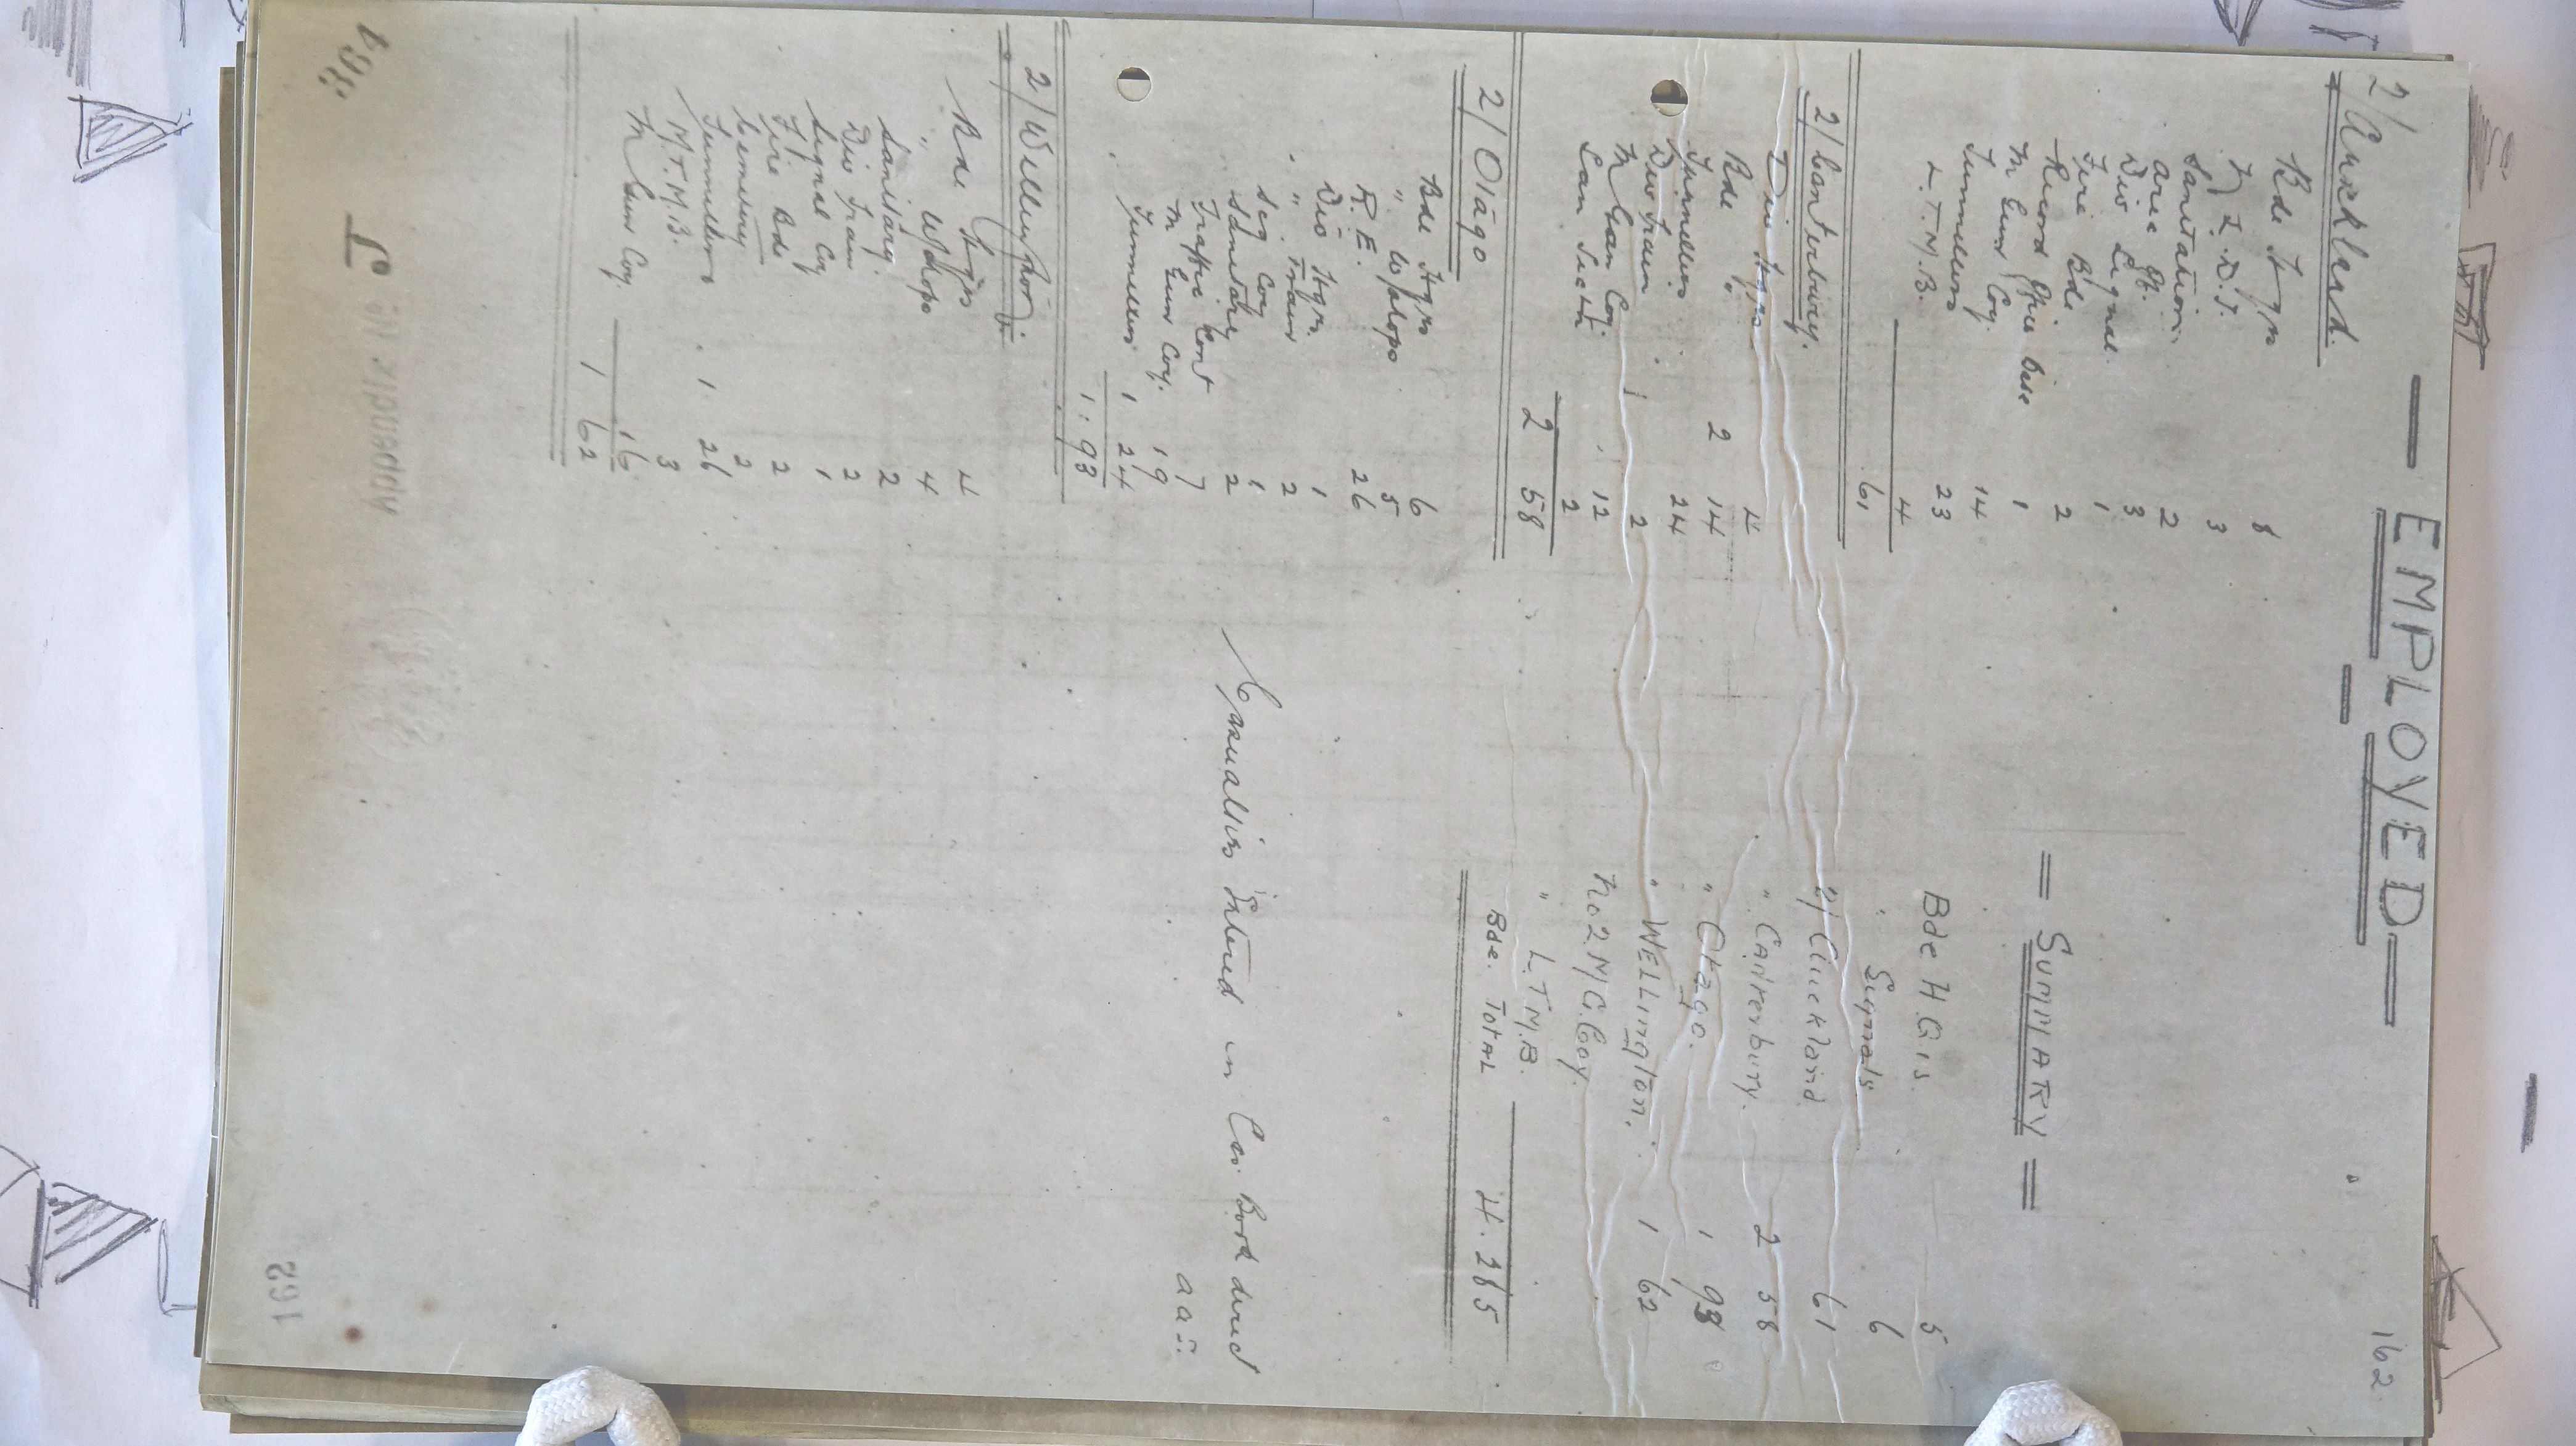 — EMPLOYED —
162
2/Auckland.
Bde Hqrs 8
3
Sanitation. 2
Area Of. 3
Div Signal. 1
Fire Bde. 2
Record Office Base 1
M Gun Coy. 14
Tunnellers 23
L.T.M.B. 4
61
2/Canterbury.
Div Hqrs 4
Bde " 2 14
Tunnellers 24
Div Train 2
M Gun Coy. 12
San Sectn 2
2 58
2/Otago
Bde Hqrs 6
" W/shops 5
R.E. 26
Div Hqrs 1
" Train 2
Sig Coy 1
Sanitary 2
Traffic Cont 7
M Gun Coy. 19
Tunnellers 1 24
1. 93
2/Wellington.
Bde Hqrs 4
" W/shops 4
Sanitary. 2
Div Train 2
Signal Coy 1
Fire Bde 2
Cemetery 2
Tunnellers 1. 26
M.T.M.B. 3
M Guns Coy 16
1 62
= SUMMARY =
Bde H.Q.rs. 5
" Signals 6
2/ Auckland 61
" Canterbury. 2 58
" Otago. 1 93
" WELLington. 1 62
No2 M/G.Coy.
" L.T.M.B.
Bde. Total 4. 285
Casualties Entered in Cas. Book direct